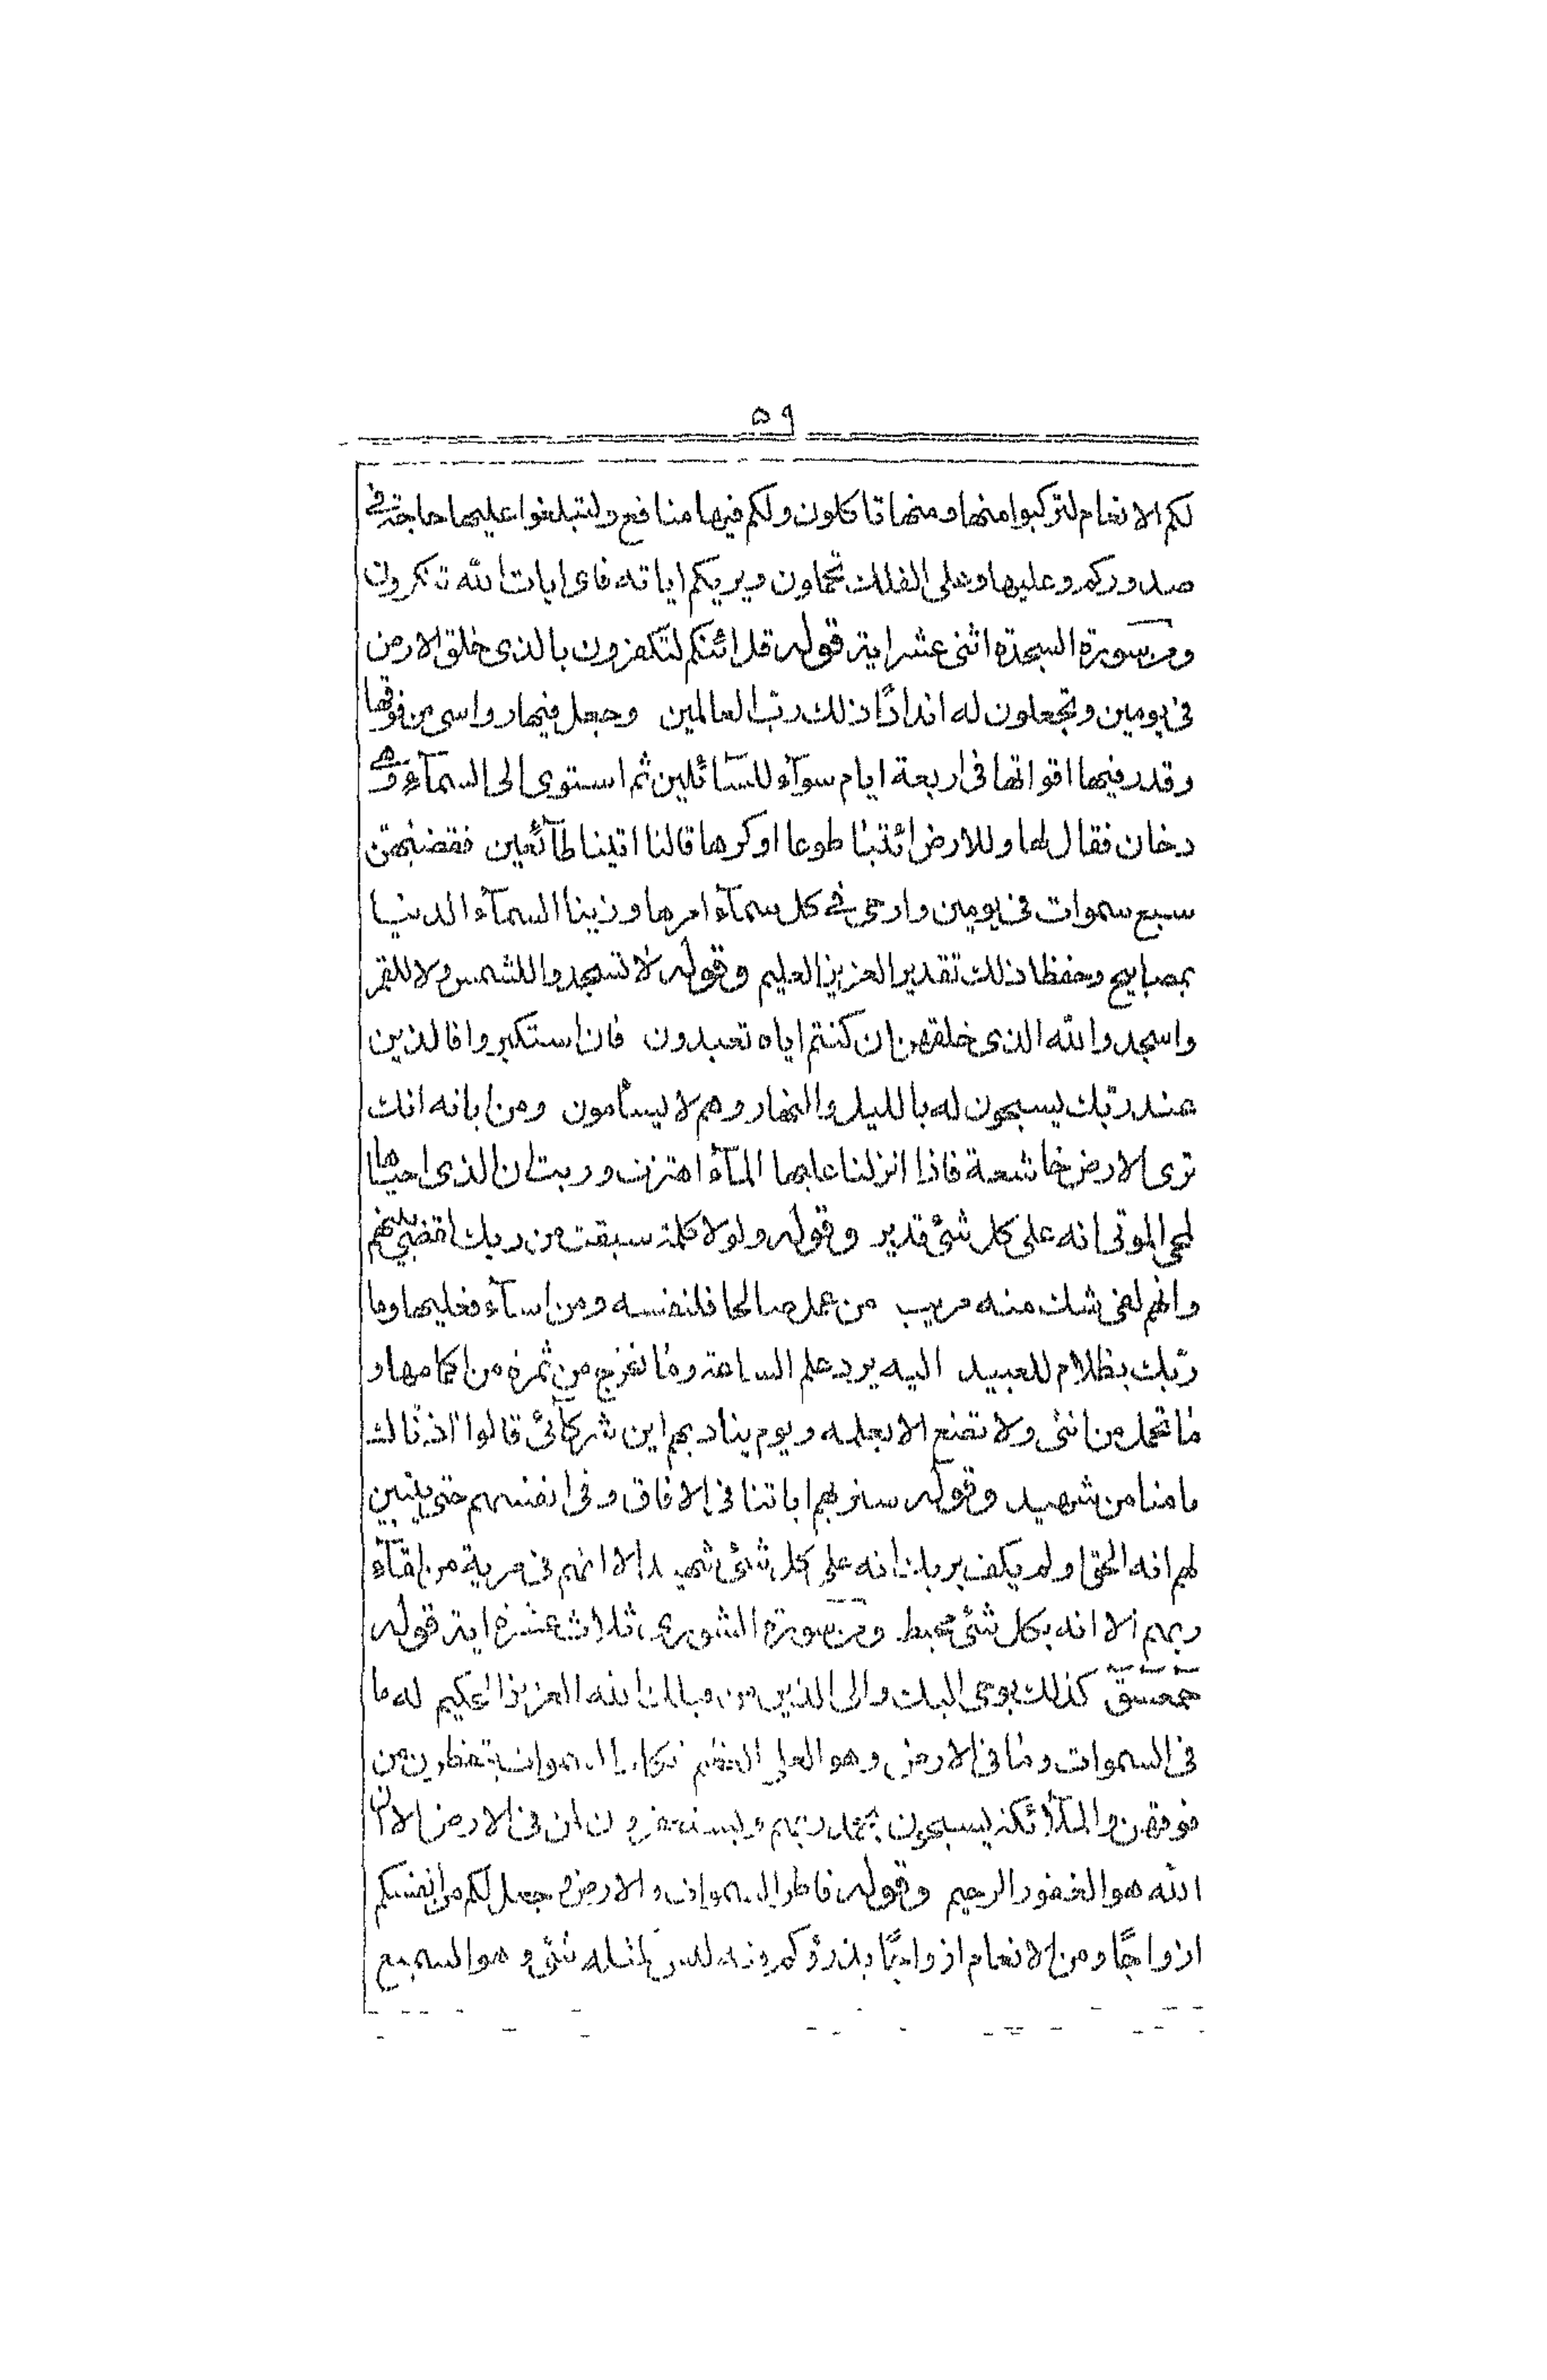 ٥٩
لكم الانعام لتركبوا منها ومنها تاكلون ولكم فيها منافع ولتبلغوا عليها حاجة في
صدوركم وعليها وعلى الفلك تحملون ويريكم اياته فاى ايات الله تنكرون
ومن سورة السجدة اثنى عشر اية قوله قل ائنكم لتكفرون بالذى خلق الارض
فى يومين وتجعلون له اندادًا ذلك ربّ العالمين وجعل فيها رواسى من فوقها
وقدر فيها اقواتها فى اربعة ايام سوآء للسّآئلين ثم استوى الى السمآء وهى
دخان فقال لها وللارض ائتيا طوعا او كرها قالتا اتينا طآئعين فقضيهن
سبع سموات فى يومين واوحى في كل سمآء امرها وزينا السمآء الدنيا
بمصابيح وحفظا ذلك تقدير العزيز العليم وقوله لا تسجدوا للشمس ولا للقمر
واسجدوا لله الذى خلقهن ان كنتم اياه تعبدون فان استكبروا فالذين
عند ربّك يسبحون له بالليل والنهار وهم لا يسأمون ومن اياته انك
ترى الارض خاشعة فاذا انزلنا عليها المآء اهتزت وربت ان الذى احياها
لمحى الموتى انه على كل شئ قدير وقوله ولولا كلمة سبقت من ربك لقضى بينهم
وانهم لفى شك منه مريب من عمل صالحا فلنفسه ومن اسآء فعليها وما
ربّك بظلام للعبيد اليه يرد علم الساعة وما تخرج من ثمرة من اكمامها و
ما تحمل من انثى ولا تضع الا بعلمه ويوم يناديهم اين شركآئى قالوا اذناك
ما منا من شهيد وقوله سنريهم اياتنا فى الافاق وفى انفسهم حتى يتبين
لهم انه الحق اولم يكف بربك انه على كل شئ شهيد الا انهم فى مرية من لقآء
ربهم الا انه بكل شئ محيط ومن سورة الشورى ثلاث عشرة اية قوله
حمعسق كذلك يوحى اليك والى الذين من قبلك الله العزيز الحكيم له ما
فى السموات وما فى الارض وهو العلى العظيم تكاد السموات يتفطرن من
فوقهن والملآئكة يسبحون بحمد ربهم ويستغفرون لمن فى الارض الا ان
الله هو الغفور الرحيم وقوله فاطر السموات والارض جعل لكم من انفسكم
ازواجًا ومن الانعام ازواجًا يذرؤكم فيه ليس كمثله شئ وهو السميع